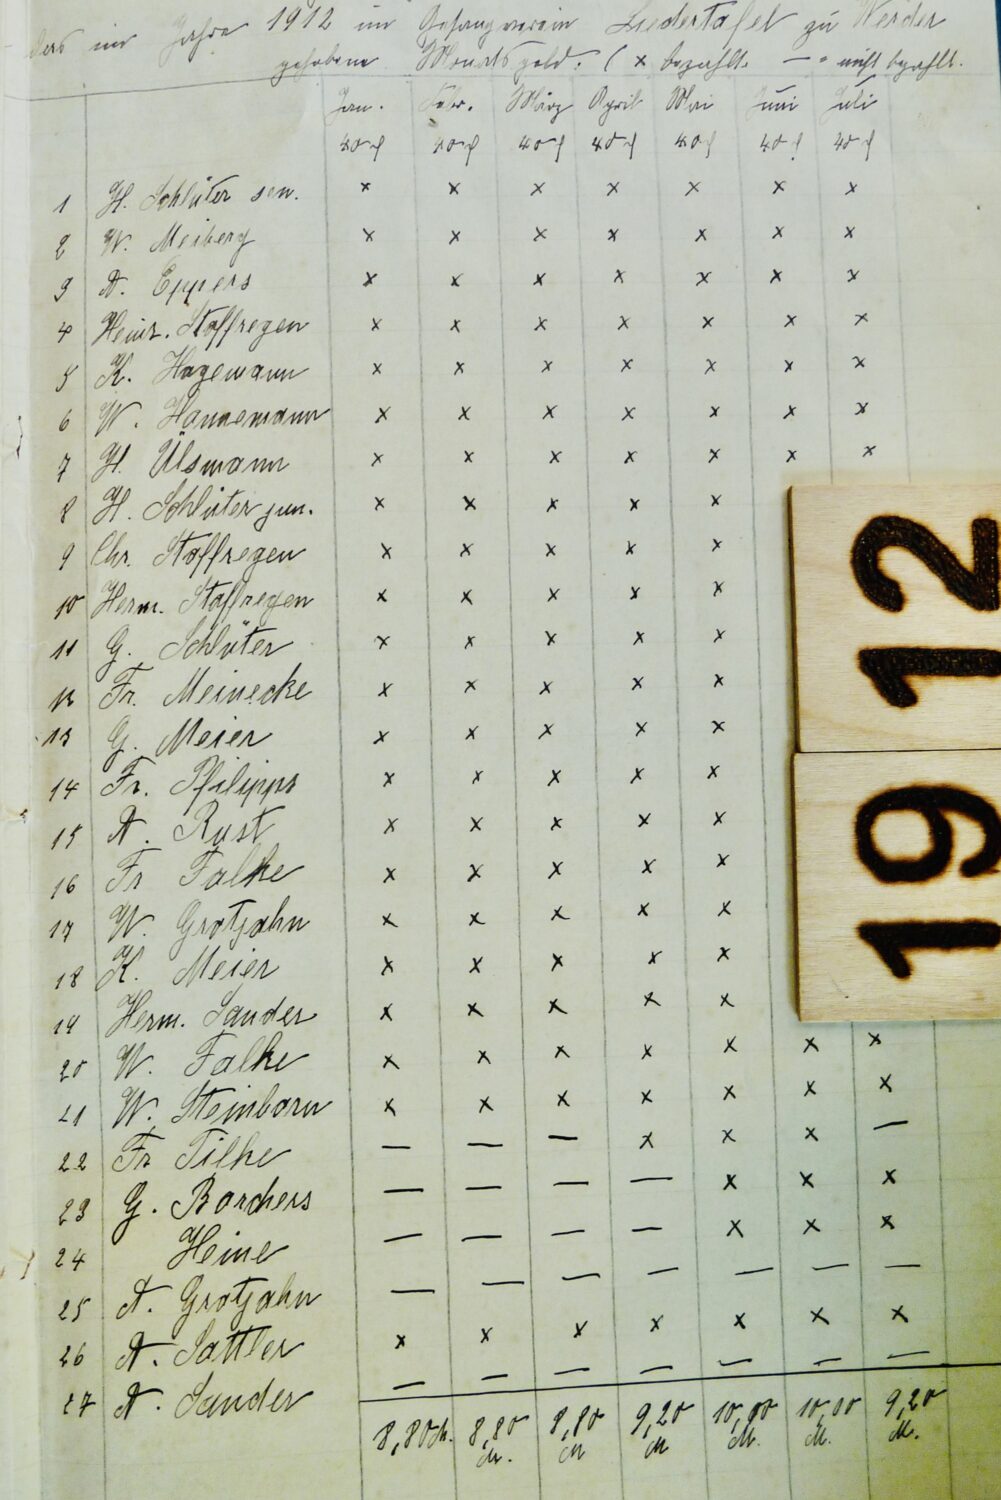 im Jahre 1912 im Gesangverein Liedertafel zu Werder
gehobene Monatsgeld. ( × bezahlt. — = nicht bezahlt.
Jan. Febr. März April Mai Juni Juli
40 ₰ 40 ₰ 40 ₰ 40 ₰ 40 ₰ 40 ₰ 40 ₰
1 H. Schlüter sen. × × × × × × ×
2 W. Meiberg × × × × × × ×
3 A. Eppers × × × × × × ×
4 Heinr. Stoffregen × × × × × × ×
5 K. Hagemann × × × × × × ×
6 W. Hannemann × × × × × × ×
7 H. Ülsmann × × × × × × ×
8 H. Schlüter jun. × × × × ×
9 Chr. Stoffregen × × × × ×
10 Herm. Stoffregen × × × × ×
11 G. Schlüter × × × × ×
12 Fr. Meinecke × × × × ×
13 G. Meier × × × × ×
14 Fr. Philipps × × × × ×
15 A. Rust × × × × ×
16 Fr Falke × × × × ×
17 W. Grotjahn × × × × ×
18 K. Meier × × × × ×
19 Herm. Sander × × × × ×
20 W. Falke × × × × × × ×
21 W. Steinborn × × × × × × ×
22 Fr Tilke — — — × × × —
23 G. Borchers — — — — × × ×
24 Heine — — — — × × ×
25 A. Grotjahn — — — — — — —
26 A. Sattler × × × × × × ×
27 A. Sander — — — — — — —
8,80 M. 8,80 M. 8,80 M 9,20 M 10,00 M. 10,00 M. 9,20 M.
1912